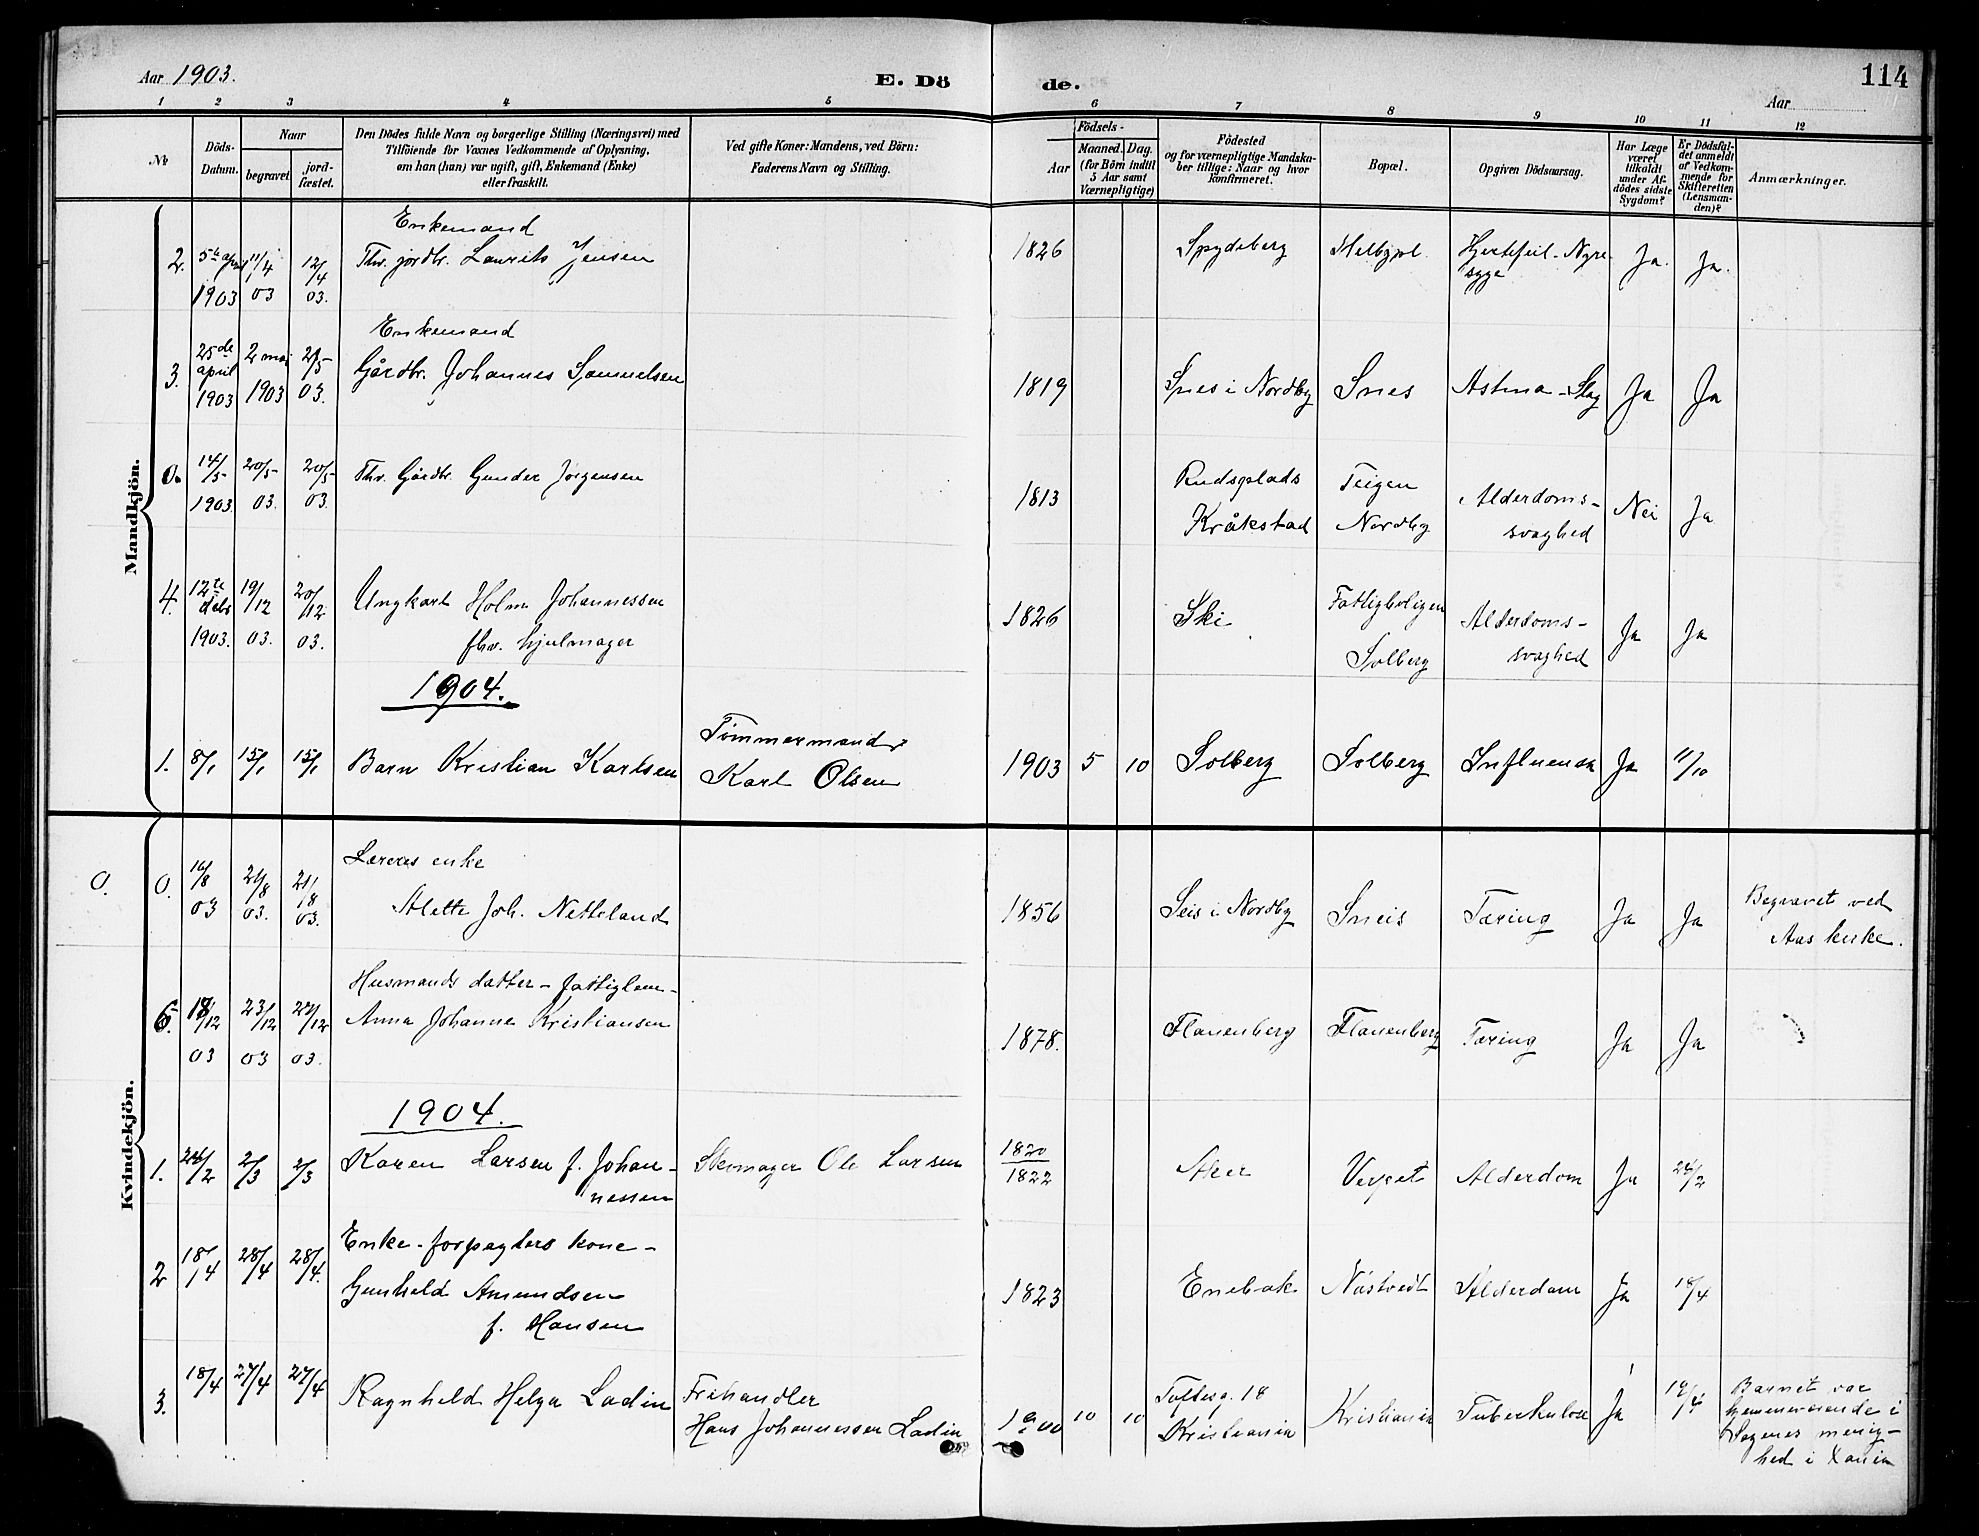 Aar 1903.
E. Dö
de.
114
Aar
1 2 3 4 5 6 7 8 9 10 11 12
No
Döds-Datum.
Naar
begravet
jord-fæstet.
Den Dödes fulde Navn og borgerlige Stilling (Næringsvei) med
Tilföiende for Voxnes Vedkommende af Oplysning,
om han (hun) var ugift, gift, Enkemand (Enke)
eller fraskilt.
Ved gifte Koner: Mandens, ved Börn:
Faderens Navn og Stilling.
Födsels-
Aar
Maaned. Dag.
(for Börn indtil
5 Aar samt
Værnepligtige)
Födested
og for værnepligtige Mandska-
ber tillige: Naar og hvor
konfirmeret.
Bopæl.
Opgiven Dödsaarsag.
Har Læge
været
tilkaldt
under Af-
dödes sidste
Sygdom?
Er Dödsfal-
det anmeldt
af Vedkom-
mende for
Skifteretten
(Lensman-
den)?
Anmærkninger.
Mandkjön.
Enkemand
2. 5te apr 1903 11/4 03 12/4 03. Fhv. jordbr. Laurits Jensen 1826 Spydeberg Hjertefeil-Nyre-
syge Ja. Ja.
Enkemand
3. 25de april 1903 2 mai 1903 2/5 03. Gårdbr. Johannes Samuelsen 1819 Snes i Nordby Snes Astma-Slag Ja Ja
0. 14/5 1903. 20/5 03. 20/5 03. Fhv. Gårdbr. Gunder Jørgensen 1813 Rudsplads
Kråkstad Teigen
Nordby Alderdoms-
svaghed Nei Ja
4. 12te dcbr 1903. 19/12 03. 20/12 03. Ungkarl Holm Johannessen
fhv. hjulmager 1826 Ski Fattigboligen
Solberg Alderdoms-
svaghed Ja Ja
1904.
1. 8/1 15/1 15/1 Barn Kristian Karlsen Tømmermand
Karl Olsen 1903 5 10 Solberg Solberg Influensa Ja 11/10
Kvindekjön.
0. 0. 16/8 03 21/8 03. 21/8 03. Lærers enke
Alette Joh. Netteland 1856 Sneis i Nordby Sneis Tæring Ja Ja Begravet ved
Aas kirke.
Husmands datter - fattiglem -
6. 18/12 03 23/12 03 23/12 03. Anna Johanne Kristiansen 1878. Flauenberg Flauenberg Tæring Ja Ja
1904.
1. 24/2 2/3 2/3 Karen Larsen f. Johan-
nessen Skomager Ole Larsen 1820
1822 Aker Vevset Alderdom Ja 24/2
2 18/4 28/4 28/4. Enke - forpagters kone -
Gunhild Amundsen
f. Hansen 1823 Enebak Nøstvedt Alderdom Ja 18/4
3. 18/4 27/4 27/4 Ragnhild Helga Ladin Frihandler
Hans Johannessen Ladin 1900 10 10 Toftesg. 18
Kristiania Kristiania Tuberkulose Ja 19/4 Barnet var
hjemmeværende i
Sagenes menig-
hed i Xania